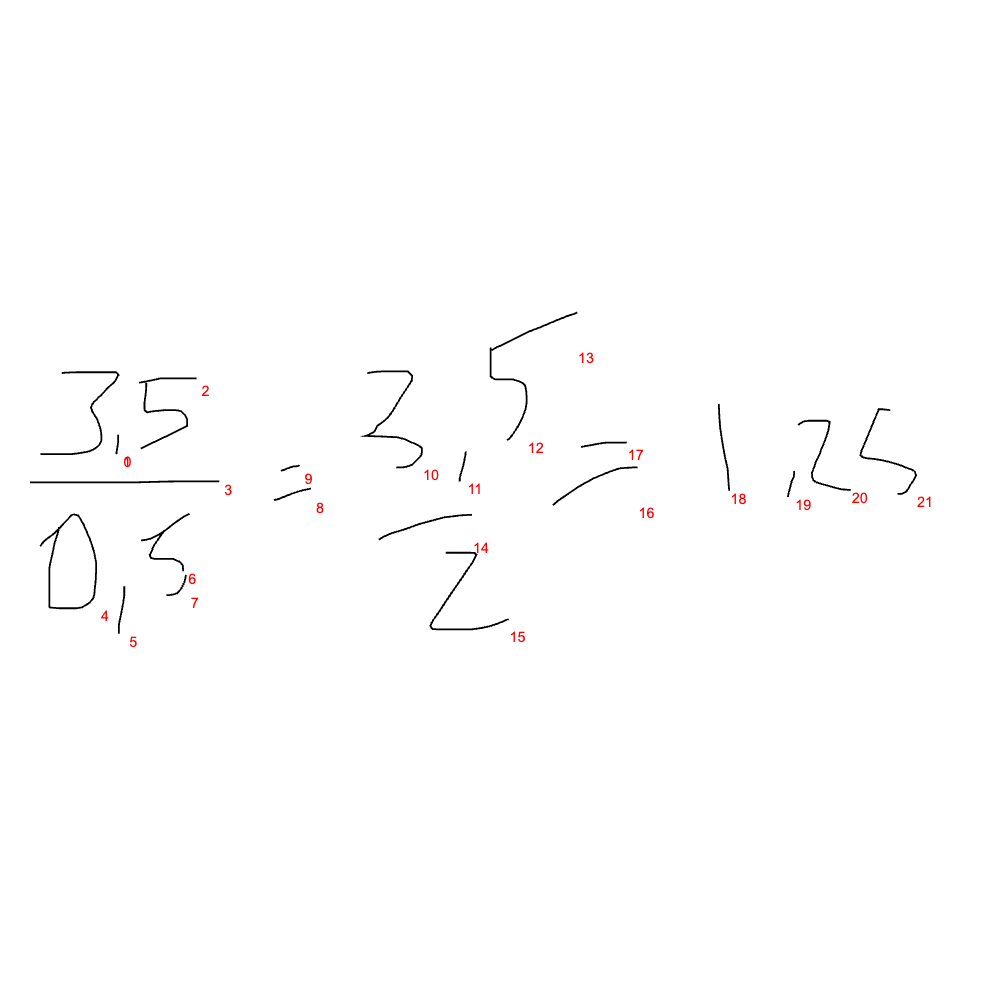 3,5
0,5 = 3,5
2 = 1,25
0 1 2 3 4 5 6 7 8 9 10 11 12 13 14 15 16 17 18 19 20 21